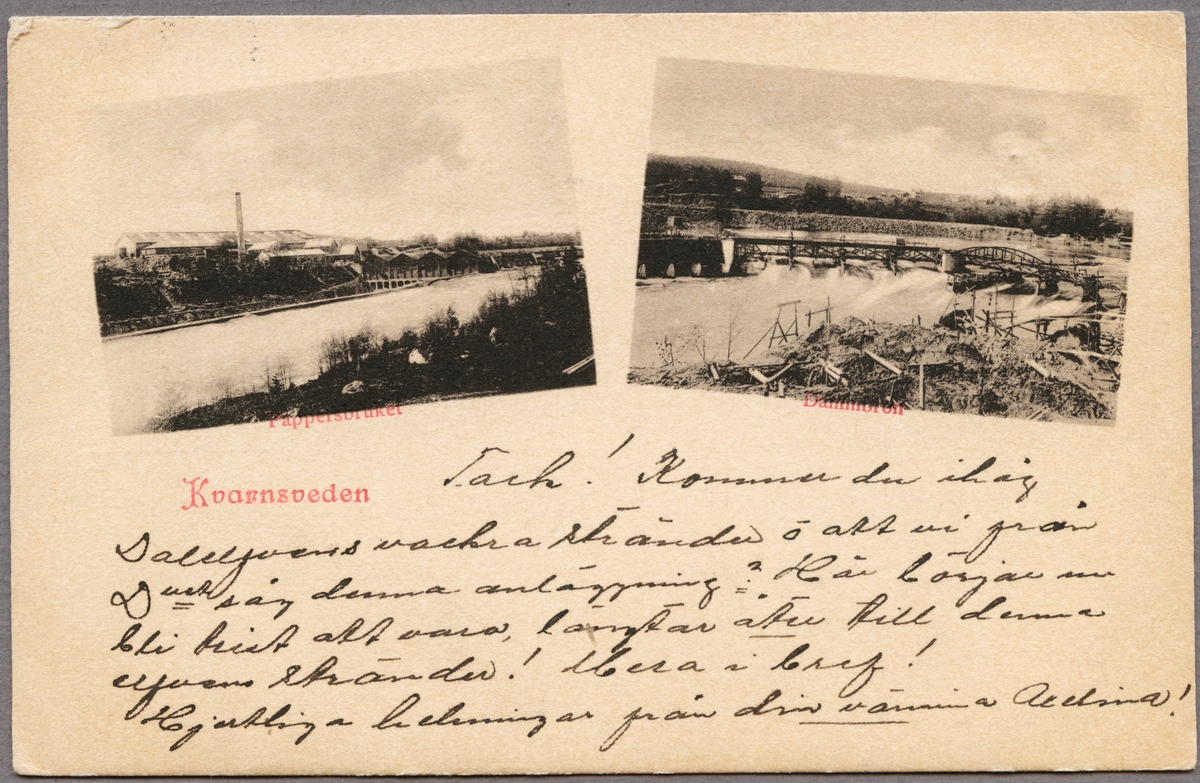 Pappersbruket
Dammbron
Kvarnsveden
Tack! Kommer du ihåg
Dalelfvens vackra stränder o att vi från
såg denna anläggning? Här börjar nu
bli trist att vara, längtar åter till denna
elfvens stränder! Mera i bref!
Hjertliga helsningar från din väninna